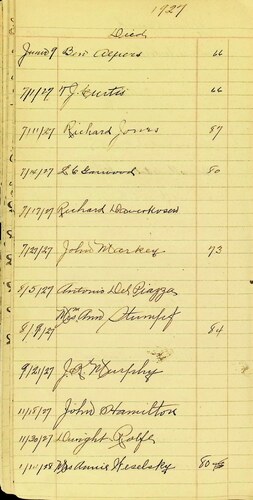 1927
Died
June 9 Ben Alpers 66
7/1/27 T J Curtis 66
7/11/27 Richard Jones 87
7/16/27 L C Garwood 80
7/17/27 Richard
7/27/27 John Markey 73
8/5/27 Antonio Del Piazza
8/9/27 Mrs Ann Stumpf 84
9/21/27 J. R. Murphy
11/15/27 John Hamilton
11/20/27 Dwight Rolfe
1/11/28 Mrs Annie Weselsky 80